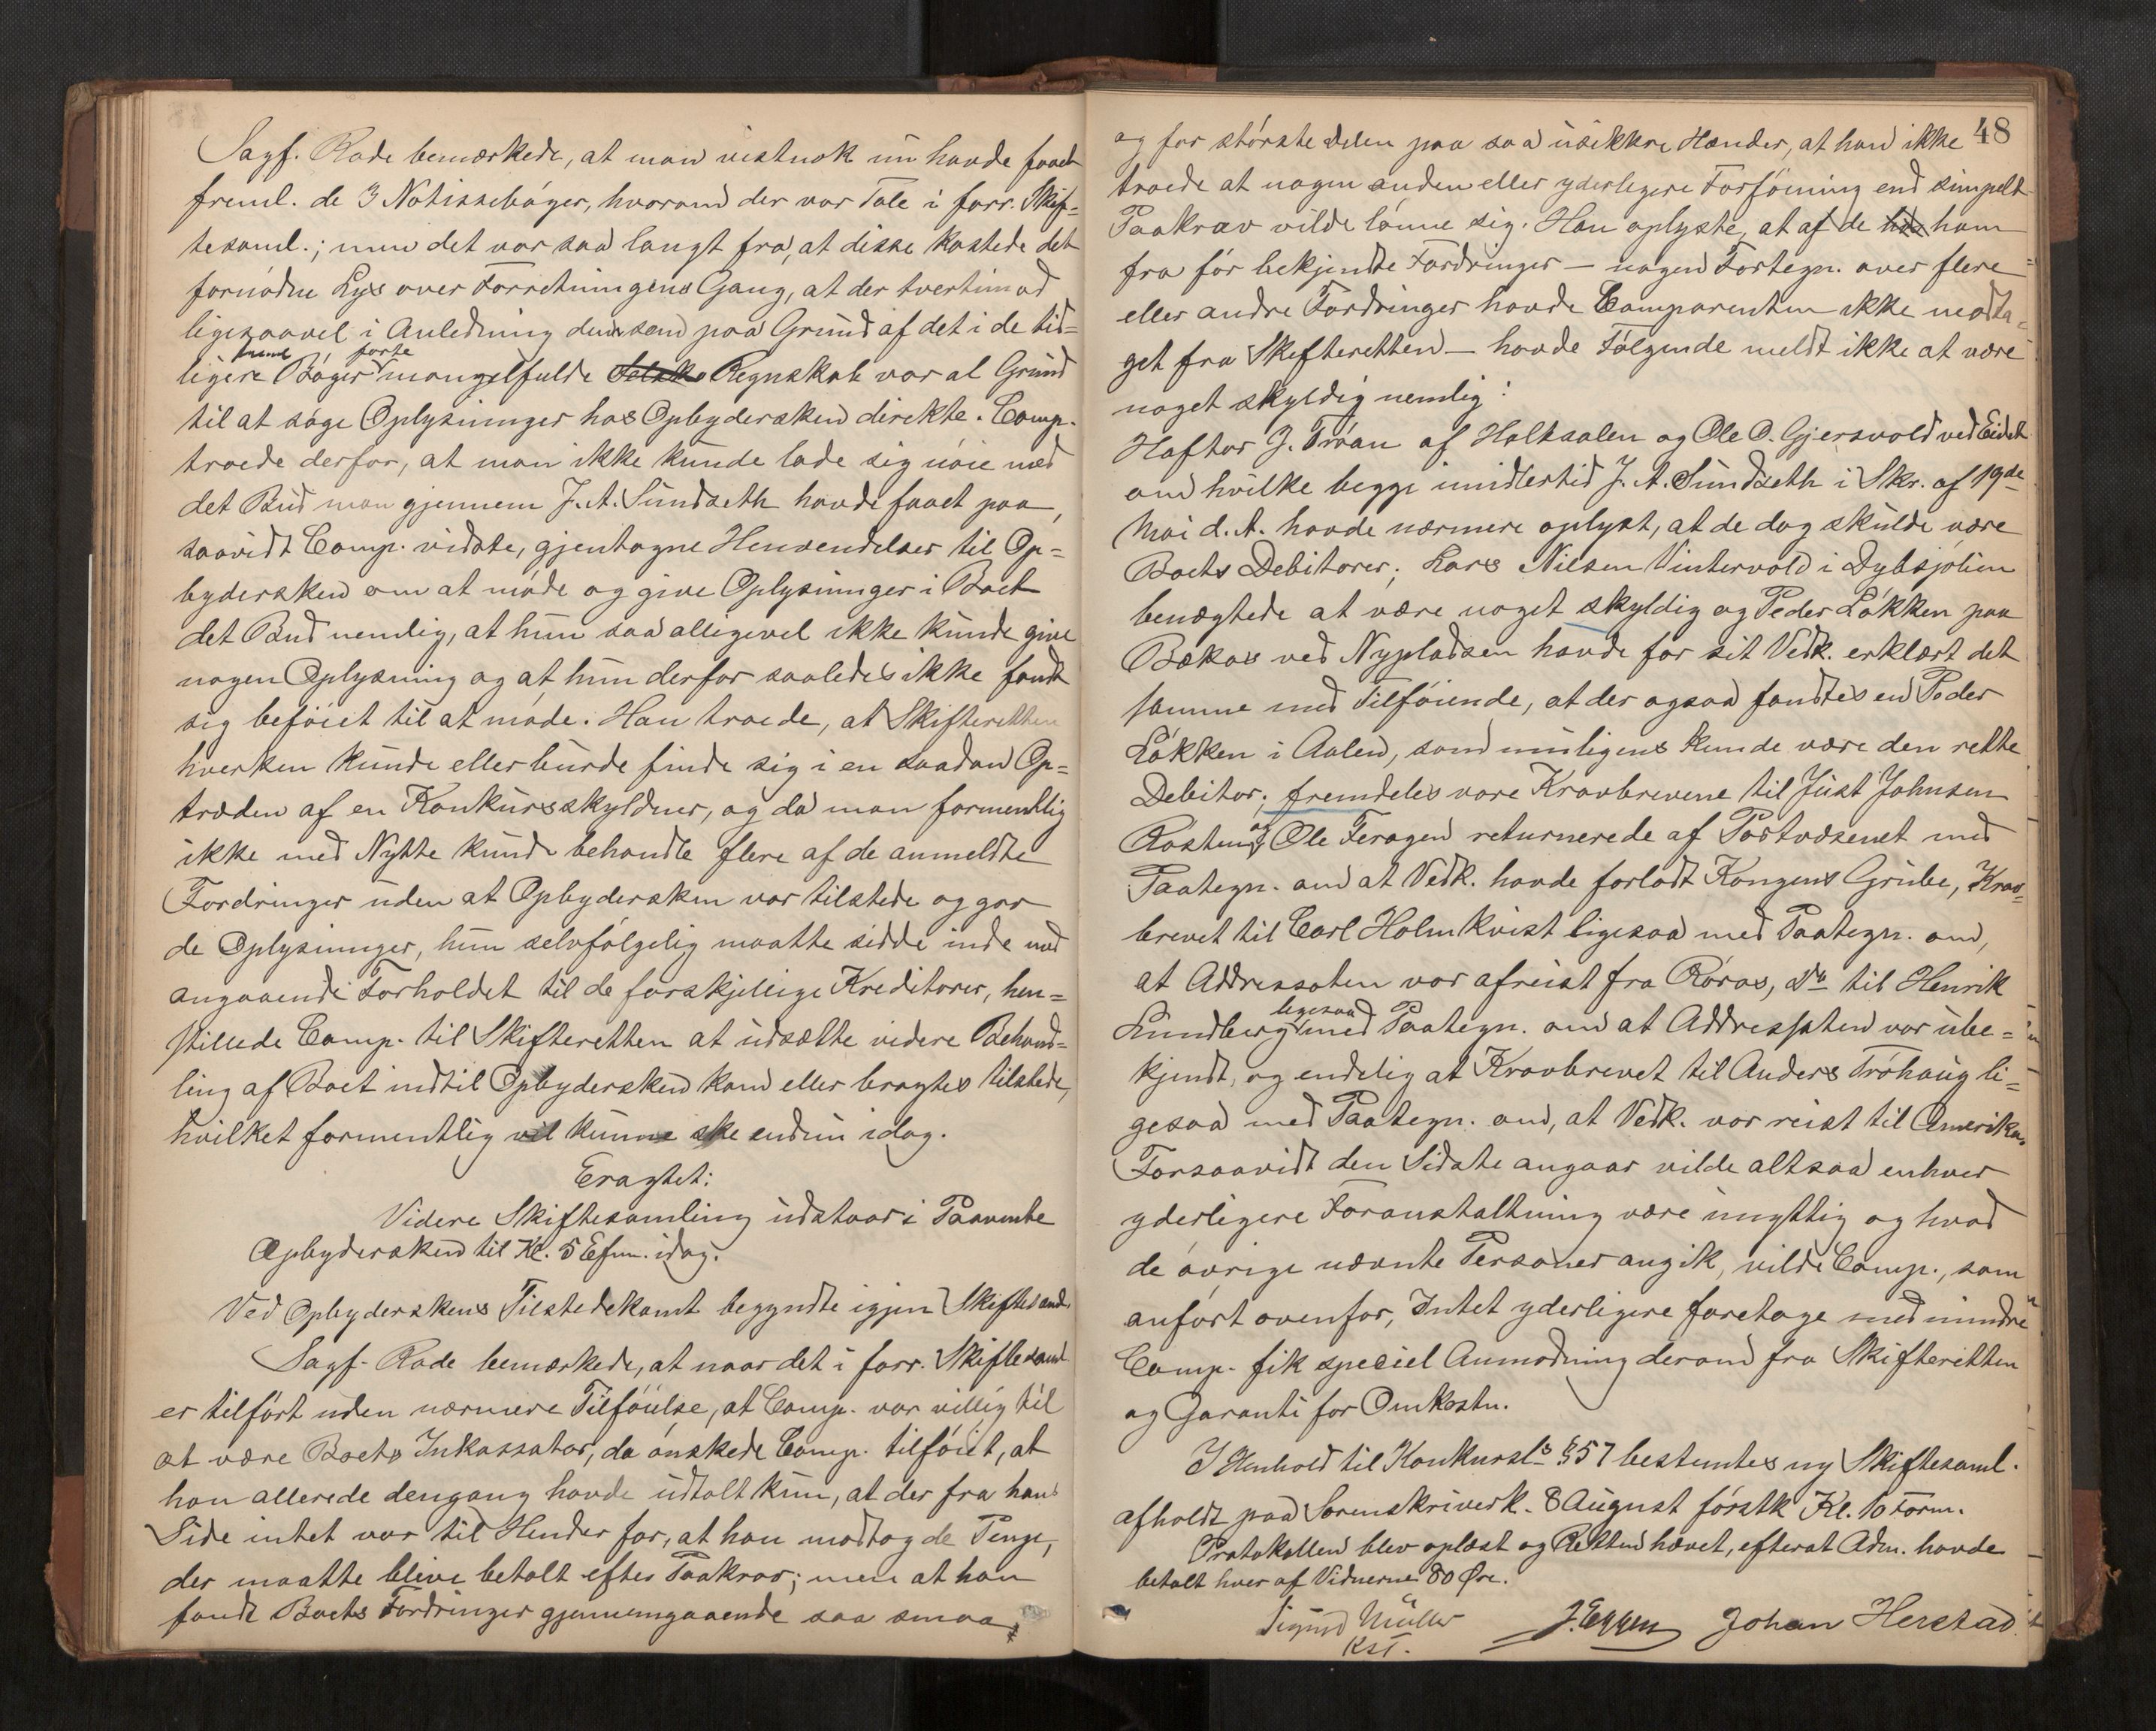 Sagf. Rode bemærkede, at man vistnok nu havde faaet
freml. de 3 Notissebøger, hvorom der var Tale i forr. Skif-
tesaml.; men det var saa langt fra, at disse kastede det
fornødne Lys over Forretningens Gang, at der tvertimod
ligesaavel i Anledning dem som paa Grund af det i de tid-
freml førte
ligere Bøger mangelfulde Regnskab var al Grund
til at søge Oplysninger hos Opbydersken direkte. Comp.
troede derfor, at man ikke kunde lade sig nøie med
det Bud man gjennem J. A. Sundseth havde faaet paa,
saavidt Comp. vidste, gjentagne Henvendelser til Op-
bydersken om at møde og give Oplysninger i Boet
det Bud nemlig, at hun saa alligevel ikke kunde give
nogen Oplysning og at hun derfor saaledes ikke fandt
sig beføiet til at møde. Han troede, at Skifteretten
hverken kunde eller burde finde sig i en saadan Op-
træden af en Konkursskyldner, og da man formentlig
ikke med Nytte kunde behandle flere af de anmeldte
Fordringer uden at Opbydersken var tilstede og gav
de Oplysninger, hun selvfølgelig maatte sidde inde med
angaaende Forholdet til de forskjellige Kreditorer, hen-
stillede Comp. til Skifteretten at udsætte videre Behand-
ling af Boet indtil Opbydersken kom eller bragtes tilstede,
hvilket formentlig vil kunne ske endnu idag.
Eragtet:
Videre Skiftesamling udstaar i Paavente
Opbydersken til Kl. 5 Efm. idag.
Ved Opbyderskens Tilstedekomst begyndte igjen Skiftesaml.
Sagf. Rode bemærkede, at naar det i forr. Skiftesaml.
er tilført uden nærmere Tilføielse, at Comp. var villig til
at være Boets Inkassator, da ønskede Comp. tilføiet, at
han allerede dengang havde udtalt kun, at der fra hans
Side intet var til Hinder for, at han modtog de Penge,
der maatte blive betalt efter Paakrav; men at han
fandt Boets Fordringer gjennemgaaende saa smaa
48
og for størstedelen paa saa usikkre Hænder, at han ikke
troede at nogen anden eller yderligere Forføining end simpelt
Paakrav vilde lønne sig. Han oplyste, at af de ham
fra før bekjendte Fordringer — nogen Fortegn. over flere
eller andre Fordringer havde Comparenten ikke modta-
get fra Skifteretten — havde Følgende meldt ikke at være
noget skyldig nemlig:
Haftor J. Trøan af Holtsalen og Ole O. Gjersvold ved Eidet
om hvilke begge imidlertid J. A. Sundseth i Skr. af 19de
Mai d. A. havde nærmere oplyst, at de dog skulde være
Boets Debitorer; Lars Nilsen Vintervold i Dybsjølien
benægtede at være noget skyldig og Peder Løkken paa
Bækos ved Nypladsen havde for sit Vedk. erklært det
samme med Tilføiende, at der ogsaa fandtes en Peder
Løkken i Aalen, som muligens kunde være den rette
Debitor; fremdeles vare Kravbrevene til Just Johnsen
og
Rosten Ole Feragen returnerede af Postvæsenet med
Paategn. om at Vedk. havde forladt Kongens Grube, Krav-
brevet til Carl Holmkvist ligesaa med Paategn. om,
at Addressaten var afreist fra Røros, do til Henrik
ligesaa
Lundberg med Paategn. om at Addressaten var ube-
kjendt, og endelig at Kravbrevet til Anders Trøhaug li-
gesaa med Paategn. om, at Vedk. var reist til Amerika.
Forsaavidt den Sidste angaar vilde altsaa enhver
yderligere Foranstaltning være unyttig og hvad
de øvrige nævnte Personer angik, vilde Comp., som
anført ovenfor, Intet yderligere foretage medmindre
Comp. fik speciel Anmodning derom fra Skifteretten
og Garanti for Omkostn.
I Henhold til Konkursl's § 57 bestemtes ny Skiftesaml.
afholdt paa Sorenskriverk. 8 August førstk Kl. 10 Form.
Protokollen blev oplæst og Retten hævet, efterat Adm. havde
betalt hver af Vidnerne 80 Øre.
Sigurd Müller J. Eggen Johan Herstad
Kst.